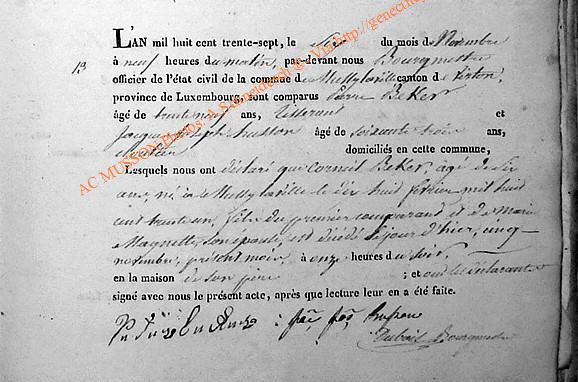 L'AN mil huit cent trente-sept, le six du mois de Novembre
13
à neuf heures du matin, par-devant nous Bourgmestre
officier de l'état civil de la commune de Mussy la ville canton de Virton,
province de Luxembourg, sont comparus Pierre Beker
âgé de trente neuf ans, Tisserant et
Jacques Joseph âgé de soixante trois ans,
domiciliés en cette commune,
Lesquels nous ont déclaré que Corneil Beker, âgé de Six
ans, né à Mussy la ville le dix huit février mil huit
cent trente un, fils du premier comparant et de Marie
Magnette, son épouse, est décédé le jour d'hier, cinq
novembre, présent mois, à onze heures du soir,
en la maison de son père ; et ont les déclarants
signé avec nous le présent acte, après que lecture leur en a été faite.
Dubois Bourgmestre
AC MUSSON Photos: A.S. Geneidesch @ - Via http://geneci